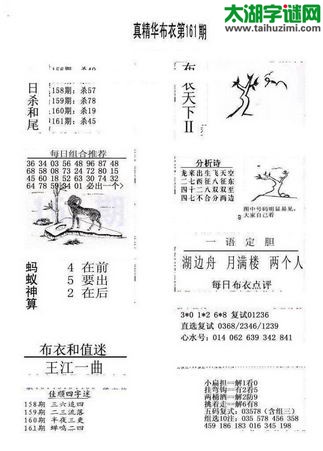 太湖字谜网
www.taihuzimi.com
真精华布衣第161期
日杀和尾
158期：杀57
159期：杀78
160期：杀19
161期：杀45
每日组合推荐
36 34 03 56 48 96 87 48
68 60 35 90 74 02 15 78
45 60 18 52 63 30 24 44
64 78 59 34 01 必出一个>
蚂蚁神算
4 在 前
5 要 出
2 在 后
布衣和值迷
王江一曲
佳顺四字迷
158期 三六追四
159期 二三流落
160期 半夜三更
161期 蝉鸣二四
布衣天下II
分析诗
龙来出生飞天空
二七两征八征东
四十二八双双至
四七不合分两边
图中号码明显易见，
大家自己看
一语定胆
湖边舟 月满楼 两个人
每日布衣点评
3*0 1*2 6*8 复试01236
直选复试 0368/2346/1239
心水号：014 062 639 342 841
小扁担一解1看0
挂弯钩一解2看5
两桶酒一解2防9
挑着走一解6看8
五码复式：03578（含组三）
组选10注：035 578 456 358
459 186 183 016 345 198